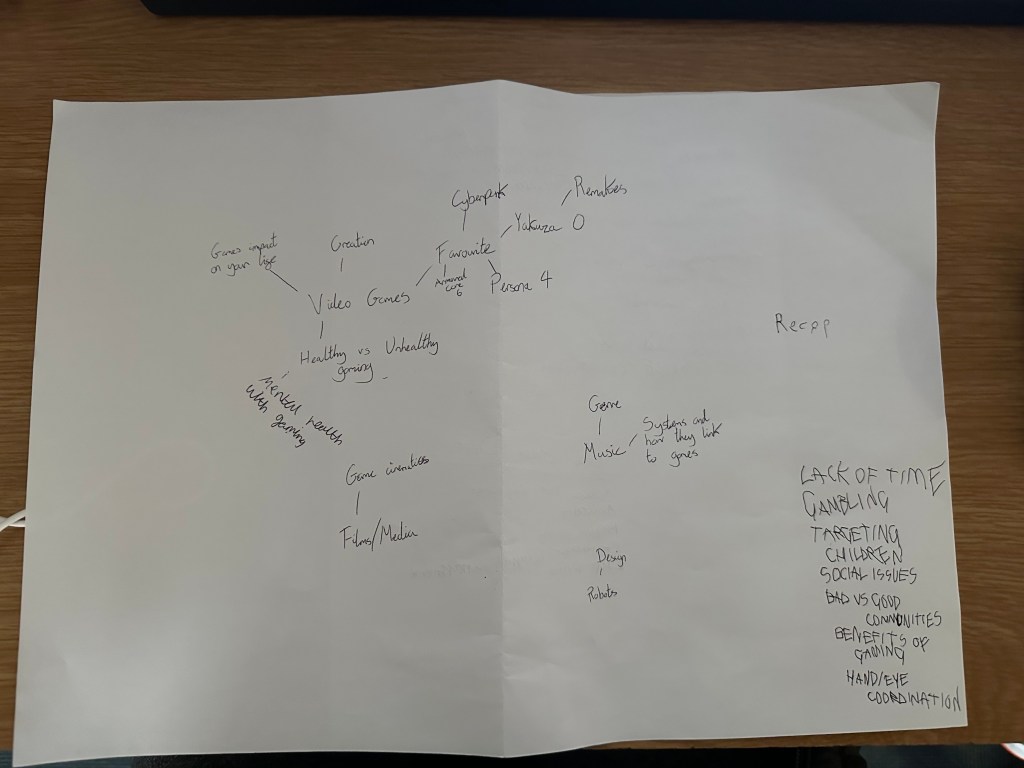 Cyberpunk
Remakes
Yakuza 0
Games impact
on your life
Creation
Favourite
Armored
core
6
Persona 4
Video Games
Healthy vs Unhealthy
gaming
Mental health
with gaming
Recap
Game
Music
Systems and
how they link
to games
Game cinematics
Films/Media
Design
Robots
LACK OF TIME
GAMBLING
TARGETING
CHILDREN
SOCIAL ISSUES
BAD VS GOOD
COMMUNITIES
BENEFITS OF
GAMING
HAND/EYE
COORDINATION